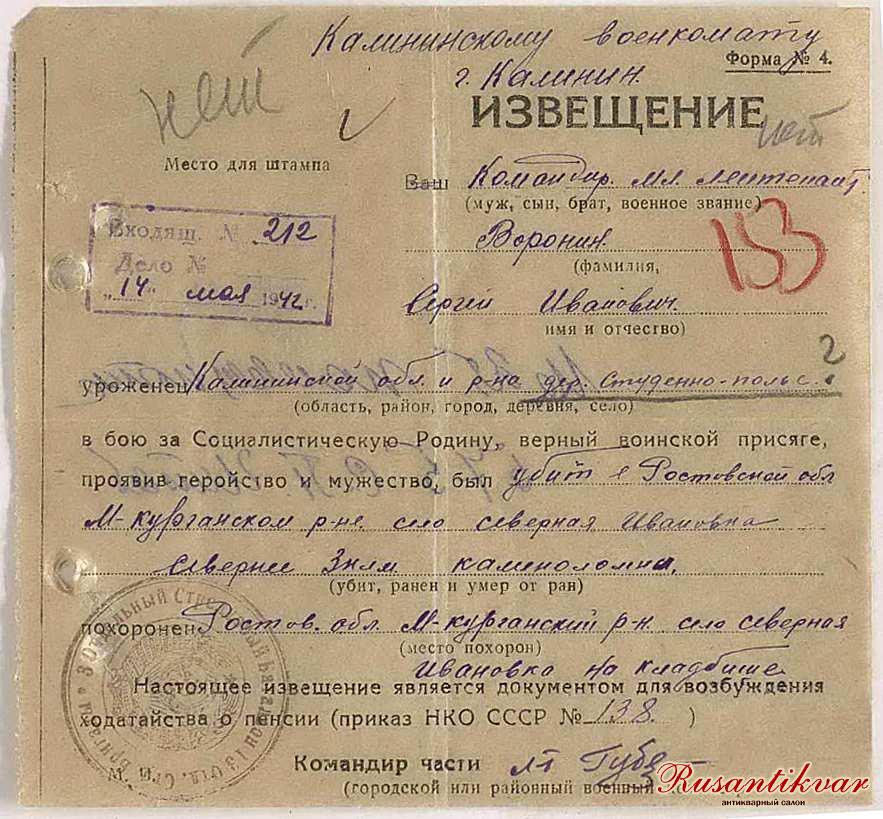 Калининскому военкомату
Форма № 4.
г. Калинин.
нет
ИЗВЕЩЕНИЕ
нет
Место для штампа
Ваш Командир. мл. лейтенант.
(муж, сын, брат, военное звание)
Входящ. № 212
Воронин.
153
Дело №
(фамилия,
"14" мая 1942 г.
Сергей Иванович.
имя и отчество)
?
уроженец Калининской обл. и р-на дер. Студенно-поль с.
(область, район, город, деревня, село)
в бою за Социалистическую Родину, верный воинской присяге,
проявив геройство и мужество, был убит в Ростовской обл
М-курганском р-не село северная Ивановка
севернее 3 клм каменоломни.
(убит, ранен и умер от ран)
похоронен Ростов. обл. М-курганский р-н село северная
(место похорон)
Ивановка на кладбище
Настоящее извещение является документом для возбуждения
ходатайства о пенсии (приказ НКО СССР № 138. )
М. П.
Командир части лт
(городской или районный военный
3 Отдельный Стрелковый Батальон 13 Отд. Стр. Бригады
Rusantikvar
антикварный салон